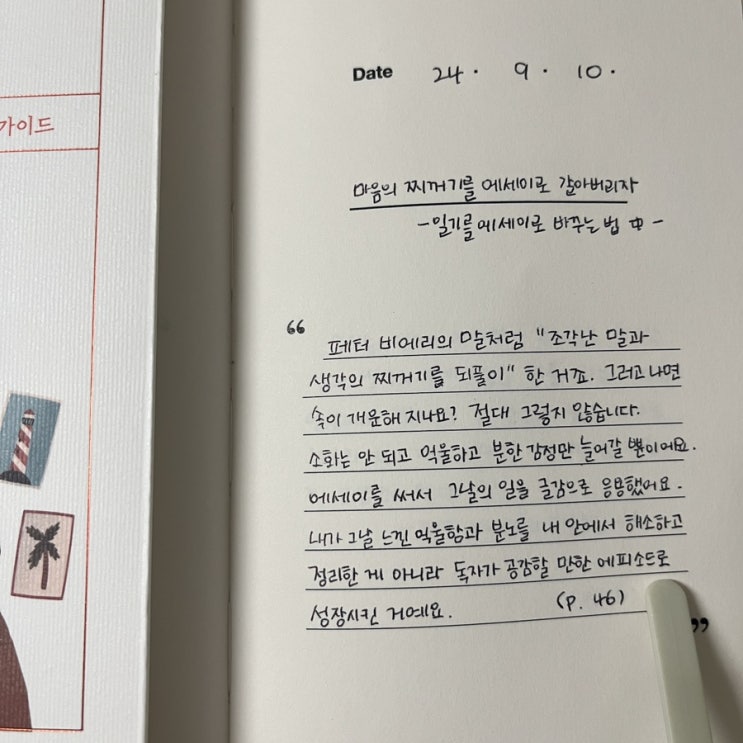 가이드
Date 24. 9. 10.
마음의 찌꺼기를 에세이로 갈아버리자
-일기를 에세이로 바꾸는 법 中-
“
페터 비에리의 말처럼 "조각난 말과
생각의 찌꺼기를 되풀이" 한 거죠. 그러고 나면
속이 개운해 지나요? 절대 그렇지 않습니다.
소화는 안 되고 억울하고 분한 감정만 늘어갈 뿐이에요.
에세이를 써서 그날의 일을 글감으로 응용했어요.
내가 그날 느낀 억울함과 분노를 내 안에서 해소하고
정리한 게 아니라 독자가 공감할 만한 에피소드로
성장시킨 거예요. (p. 46)
”